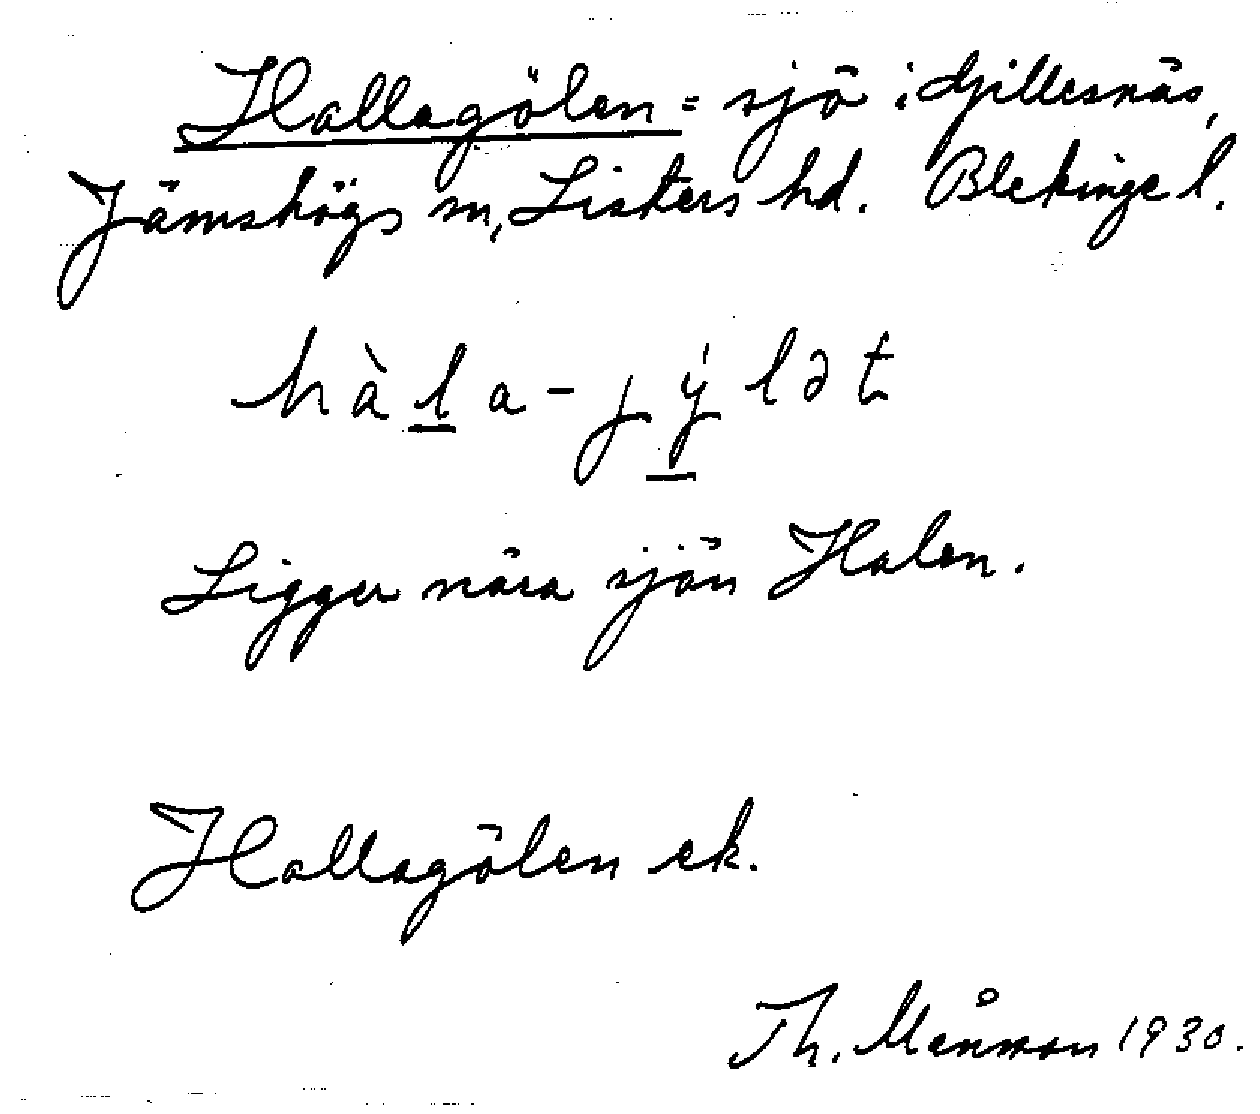 Hallagölen = sjö i Gillesnäs,
Jämshögs sn, Listers hd. Blekinge l.
hàla-jýlət
Ligger nära sjön Halen.
Hallagölen ek.
Th. Månsson 1930.